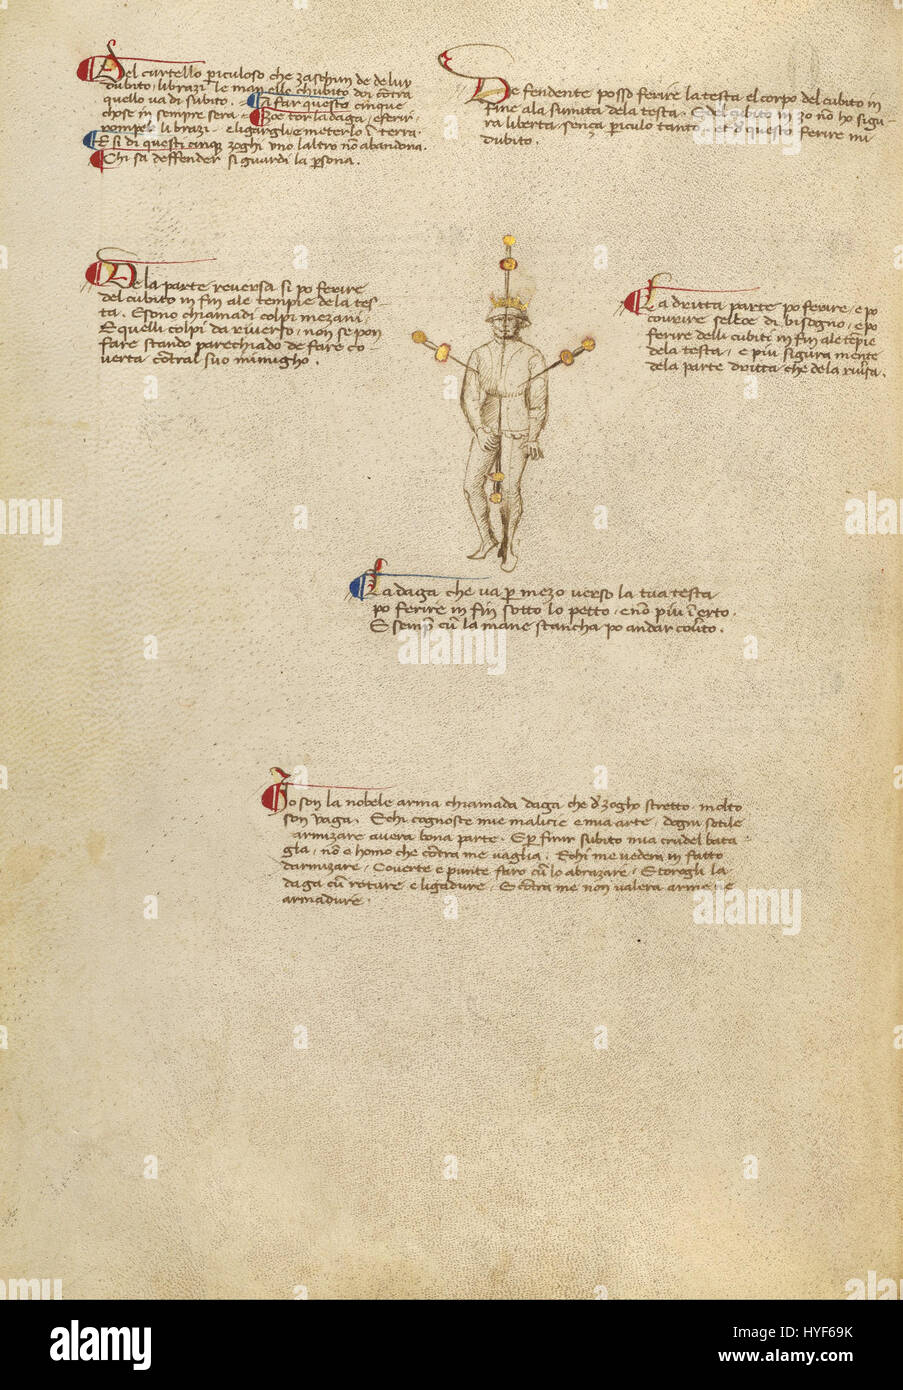 Del curtello piculoso che zaschun de de lu v
dubito, librazi le man elle chubito doi cōtra
quello va di subito. A far questo cinque
chose in sempre sera. Zoe tor la daga, e ferir,
rompele li brazi, e ligargli e meterlo ī terra.
E si di questi cinq zoghi uno laltro nō abandona.
Chi sa deffender si guardi la psona.
De fendente posso ferire la testa, el corpo del cubito in
fine ala sumita dela testa. E del cubito in zo nō ho sigu-
ra liberta senza piculo tanto, et d questo ferire mi
dubito.
De la parte reversa si po ferire
del cubito in fin ale tempie de la tes-
ta. E sono chiamadi colpi mezani,
E quelli colpi da riverso, non se pon
fare stando parechiado de fare co-
verta cōtral suo inimigho.
La dritta parte po ferire, e po
covrire selloe di bisogno, e po
ferire delli cubiti in fin ale tēpie
dela testa, e piu sigura mente
de la parte dritta che de la rivsa.
La daga che va p mezo verso la tua testa
po ferire in fin sotto lo petto, e nō piu ī erto.
E semp cū la mane stancha po andar covto.
Io son la nobele arma chiamada daga che d'zogho stretto molto
son vaga. E chi cognosce mie malicie e mia arte, dogni sotile
armizare avera bona parte. E p finir subito mia crudel bata
gla, nō e homo che cōtra me vaglia. E chi me vedera in fatto
darmizare, Coverte e punte faro cū lo abrazare, E torogli la
daga cū roture e ligadure, E cōtra me non valera arme ne
armadure.
alamy
alamy
alamy
alamy
HYF69K
www.alamy.com